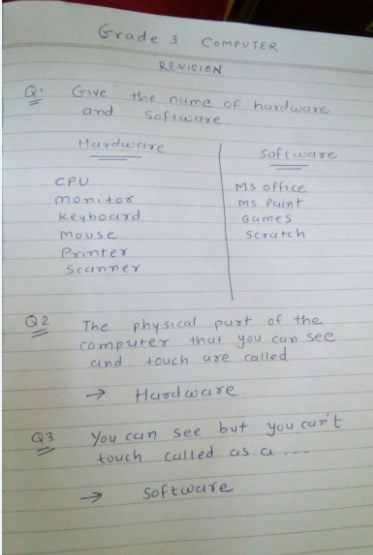 Grade 3 COMPUTER
REVISION
Q1 Give the name of hardware
and software.
Hardware
Software
CPU
monitor
Keyboard
Mouse
Printer
Scanner
MS office
MS Paint
Games
Scratch
Q2 The physical part of the
computer that you can see
and touch are called
→ Hardware.
Q3 You can see but you can't
touch called as a ...
→ Software